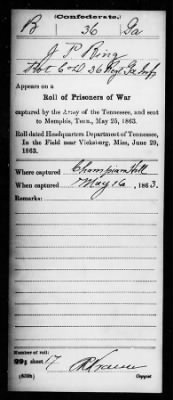 (Confederate.)
B 36 Ga
J P
36 Reg Ga Inf
Appears on a
Roll of Prisoners of War
captured by the Army of the Tennessee, and sent
to Memphis, Tenn., May 25, 1863.
Roll dated Headquarters Department of Tennessee,
In the Field near Vicksburg, Miss, June 29,
1863.
Where captured Champion Hill
When captured May 16, 1863.
Remarks:
Number of roll:
sheet 17
Copyist